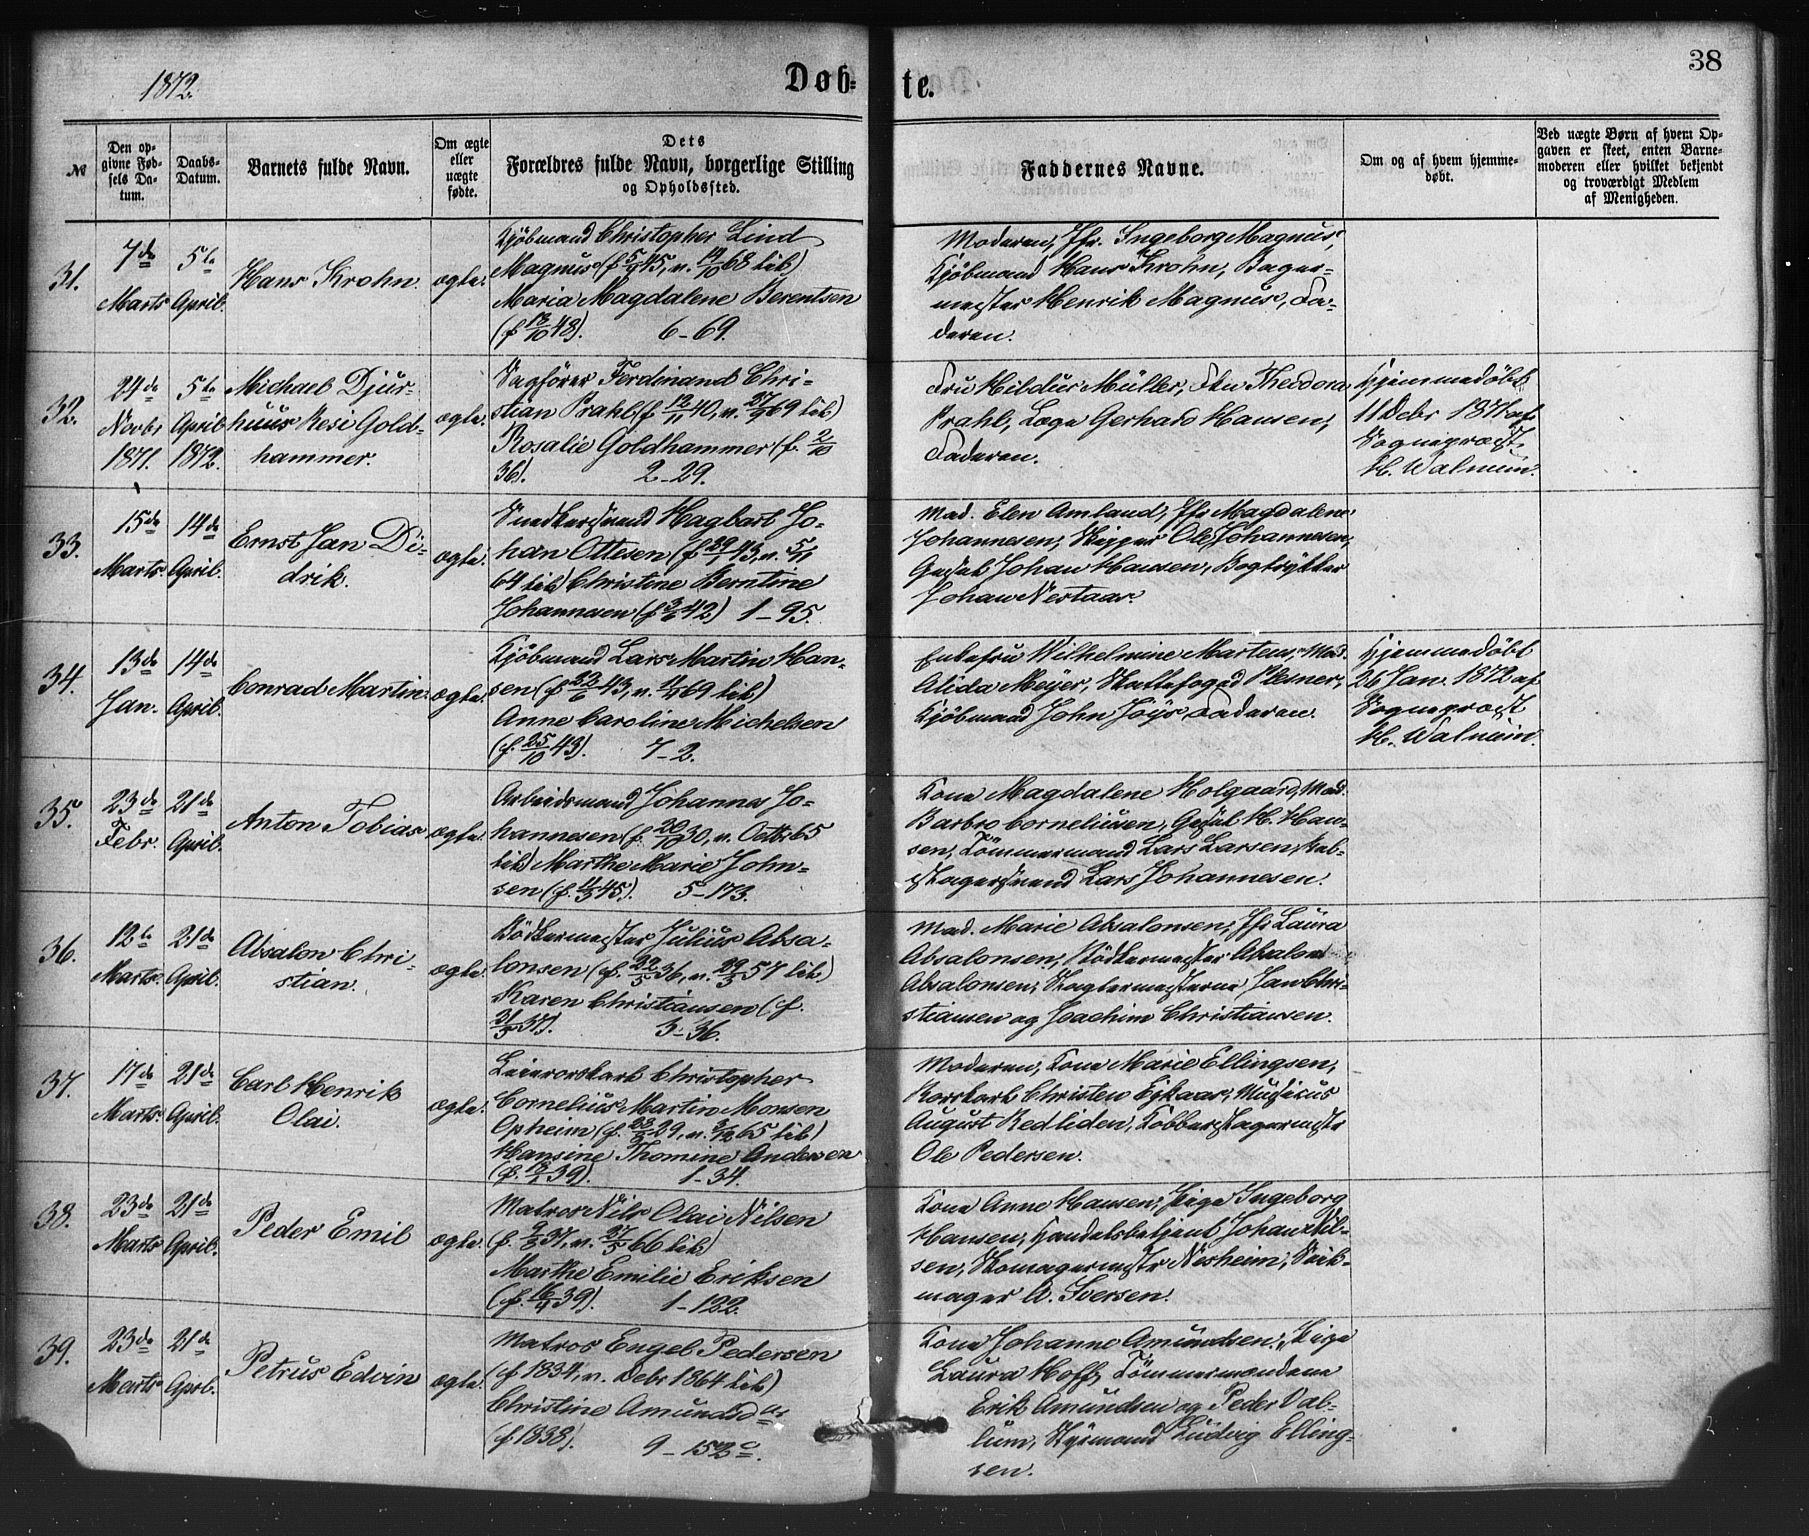 1872.
Døb-
te.
38
№
Den op-
givne Fød-
sels Da-
tum.
Daabs-
Datum.
Barnets fulde Navn.
Om ægte
eller
uægte
fødte.
Dets
Forældres fulde Navn, borgerlige Stilling
og Opholdssted.
Faddernes Navne.
Om og af hvem hjemme-
døbt.
Ved uægte Børn af hvem Op-
gaven er skeet, enten Barne-
moderen eller hvilket bekjendt
og troværdigt Medlem
af Menigheden.
31.
7de
Marts
5te
April.
Hans Krohn.
ægte.
Kjöbmand Christopher Lind
Magnus (f 5/9 45, v. 14/10 68 lib)
Maria Magdalene Berentsen
(f 13/10 48). 6-69.
Moderen, Jfr. Ingeborg Magnus,
Kjöbmand Hans Krohn, Bager-
mester Henrik Magnus, Fa-
deren.
32.
24de
Novbr
1871.
5te
April
1872.
Michael Djur-
huus Resi Gold-
hammer.
ægte.
Sagförer Ferdinand Chri-
stian Prahl (f 12/11 40, v. 27/9 69 lib)
Rosalie Goldhammer (f. 2/10
36). 2-29.
Fru Hildur Müller, Fkn Theodora
Prahl, Læge Gerhard Hansen,
Faderen.
Hjemmedöbt
11 Debr 1871 af
Sognepræst
H. Walnum.
33.
15de
Marts.
14de
April.
Ernst Jan Di-
drik.
ægte.
Snedkersvend Hagbart Jo-
han Ottesen (f 29/1 43, v. 5/11
64 lib) Christine Berntine
Johannesen (f 3/6 42) 1-95.
Mad. Elen Amland, Jfr Magdalene
Johannesen, Skipper Ole Johannesen,
Gesel Johan Hansen, Bogtrykker
Johan Nestaas.
34.
13de
Jan.
14de
April.
Conrad Martin.
ægte.
Kjöbmand Lars Martin Han-
sen (f 23/6 43, v. 69 lib)
Anne Caroline Michelsen
(f. 25/10 43). 7-2.
Enkefru Wilhelmine Martens, Mad.
Alida Meyer, Skattefoged Plesner,
Kjöbmand John Joys Faderen.
Hjemmedöbt
26 Jan. 1872 af
Sognepræst
H. Walnum.
35.
23de
Febr.
21de
April.
Anton Tobias
ægte.
Arbeidsmand Johannes Jo-
hannesen (f. 20/10 30, v. Octbr 65
lib) Marthe Marie John-
sen (f. 11/3 45). 5-173.
Kone Magdalene Holgaard, Mad.
Barbro Corneliusen, Gesel H. Han-
sen, Tömmermand Lars Larsen, Reb-
slagersvend Lars Johannesen.
36.
12te
Marts.
21de
April.
Absalon Chri-
stian.
ægte.
Bödkermester Julius Absa-
lonsen (f. 22/5 36, v. 29/3 57 lib)
Karen Christiansen (f.
31/5 37). 3-36.
Mad. Marie Absalonsen, Jfr Laura
Absalonsen, Bödkermester Absalon
Absalonsen, Slagtermesterne Jan Chri-
stiansen og Joachim Christiansen.
37.
17de
Marts.
21de
April.
Carl Henrik
Olai.
ægte.
Leierorskarl Christopher
Cornelius Martin Monsen
Opheim (f. 29, v. 65 lib)
Hansine Thomine Andersen
(f. 39). 1-34.
Moderen, Kone Marie Ellingsen,
Rorskarl Christen Eykaas, Musicus
August Redliden, Kobberslagermstr
Ole Pedersen.
38.
23de
Marts
21de
April.
Peder Emil
ægte.
Matros Nils Olai Nilsen
(f. 9/3 37, v. 27/5 66 lib)
Marthe Emilie Eriksen
(f. 16/4 39). 1-122.
Kone Anne Hansen, Pige Ingeborg
Hansen, Handelsbetjent Johan Nil-
sen, Skomagermstr Nesheim, Seil-
mager A. Iversen.
39.
23de
Marts
21de
Aprl.
Petrus Edvin
ægte.
Matros Engel Pedersen
(f 1834, v. Debr 1864 lib)
Christine Amundsdtr
(f 1838). 9-152c.
Kone Johanne Amundsen, Pige
Laura Hoff, Tömmermændene
Erik Amundsen og Peder Val-
lum, Styrmand Ludvig Elling-
sen.